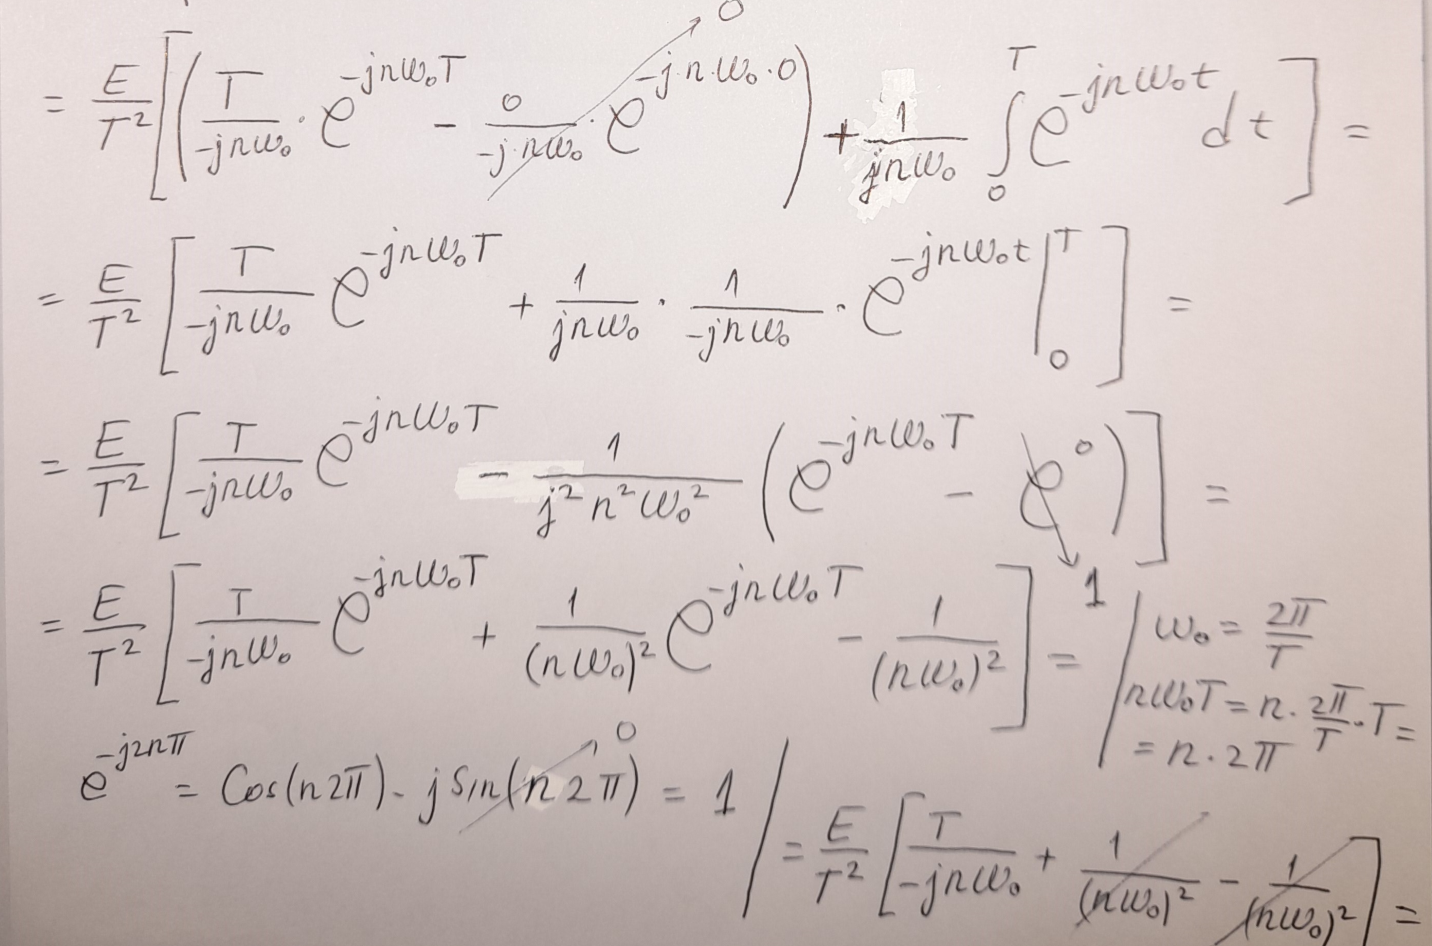 = E/T² [ ( T/(-jnω₀) · e^(-jnω₀T) - 0/(-j·nω₀) · e^(-j·n·ω₀·0) ) → 0 + 1/(jnω₀) ∫₀ᵀ e^(-jnω₀t) dt ] =
= E/T² [ T/(-jnω₀) e^(-jnω₀T) + 1/(jnω₀) · 1/(-jnω₀) · e^(-jnω₀t) |₀ᵀ ] =
= E/T² [ T/(-jnω₀) e^(-jnω₀T) - 1/(j²n²ω₀²) ( e^(-jnω₀T) - e⁰ → 1 ) ] =
= E/T² [ T/(-jnω₀) e^(-jnω₀T) + 1/(nω₀)² e^(-jnω₀T) - 1/(nω₀)² ] =
| ω₀ = 2π/T
nω₀T = n · 2π/T · T =
= n · 2π
e^(-j2nπ) = Cos(n2π) - j Sin(n2π) → 0 = 1 |
= E/T² [ T/(-jnω₀) + 1/(nω₀)² - 1/(nω₀)² ] =